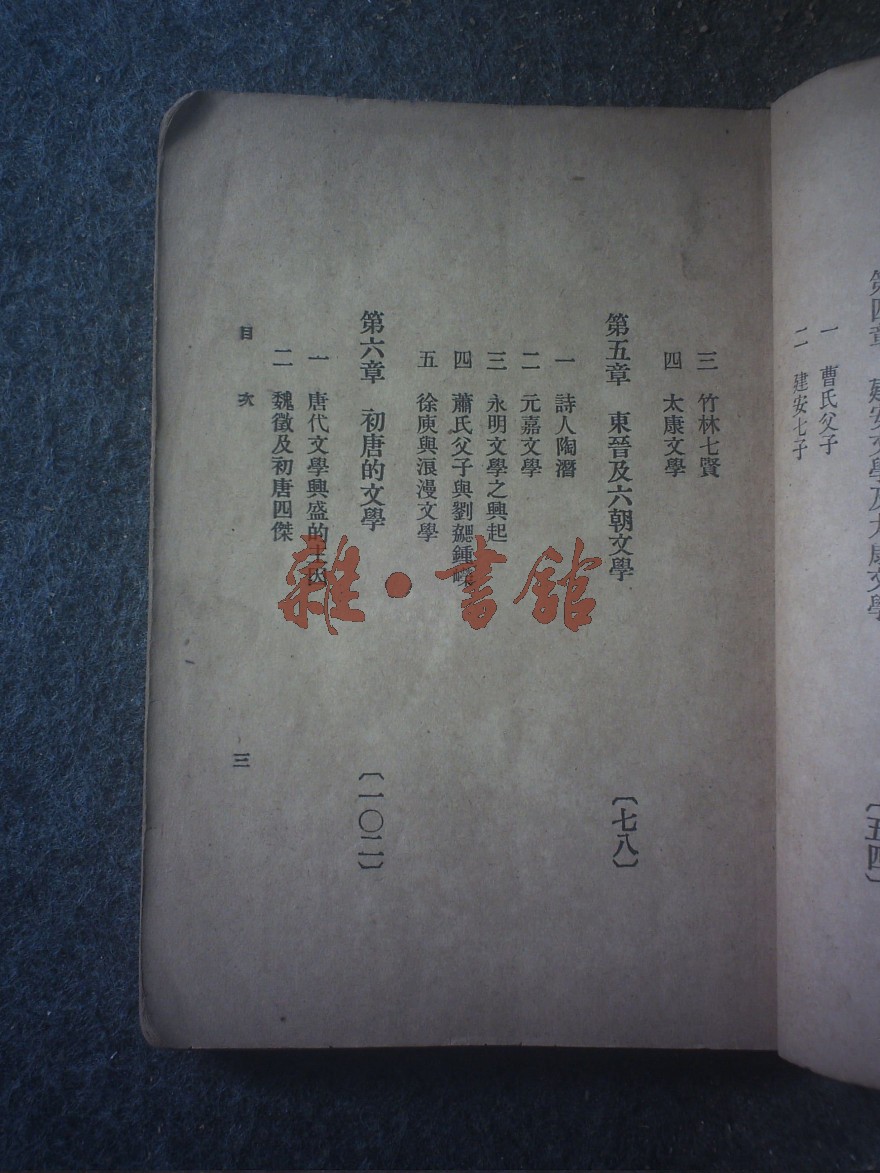 第四章 建安文學及太康文學
〔五四〕
一 曹氏父子
二 建安七子
三 竹林七賢
四 太康文學
第五章 東晉及六朝文學
〔七八〕
一 詩人陶潛
二 元嘉文學
三 永明文學之興起
四 蕭氏父子與劉勰鍾嶸
五 徐庾與浪漫文學
第六章 初唐的文學
〔一〇二〕
一 唐代文學興盛的主因
二 魏徵及初唐四傑
目次
三
雜·書館